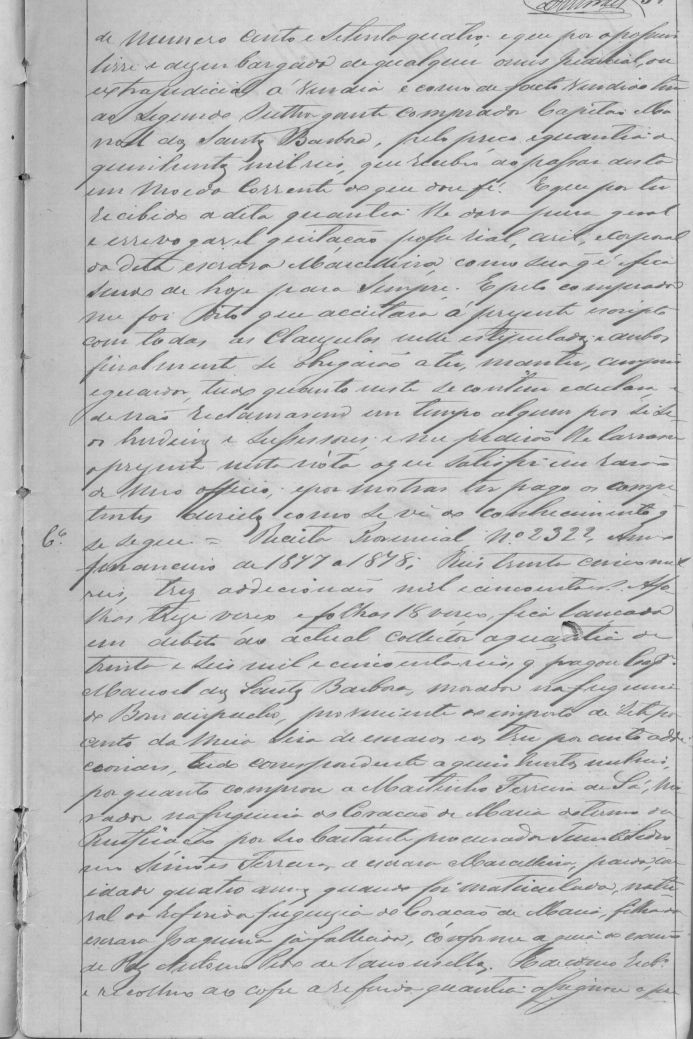 de numero cento e setenta quatro, e que por a possuir
livre e dezembargada de qualquer onus judicial, ou
extrajudicial á vendia e como de facto vendido tem
ao segundo outhorgante comprador Capitão Ma-
noel dos Santos Barbosa, pelo preço e quantia de
quinhentos mil reis, que recebeo ao passar desta
em moeda corrente do que dou fé. E que por ter
recebido a dita quantia lhe dava plena geral
e irrevogavel quitação posse rial, civil, e corporal
da dita escrava Marcellina como sua q' é fica
sendo de hoje para sempre. E pelo comprador
me foi dito que acceitava á prezente escripta
com todas as clauzulas nella estipuladas e ambos
finalmente, se obrigarão a ter, manter, cumprir
e guardar, tudo quanto neste se contem e declara e
de não reclamarem em tempo algum por si se-
os herdeiros e sussessores e me pedirão lhe lavrasse
o prezente nesta nóta o que satisfiz em razão
de meu officio, e por mostrar ter pago os compe-
tentes direitos como se vê do conhecimento q'
se segue = Receita Provincial, Nº 2322, anno
financeiro de 1877 a 1878; Reis trinta cinco mil
reis, trez addecionais mil e cincoenta. A fo-
lhas treze verso e folhas 18 verso, fica lançada
em debito ao actual collector a quantia de
trinta e seis mil e cincoenta reis, q' pagou Cap.
Manoel dos Santos Barbosa, morador na freguezi-
do Bomdispacho, proveniente do imposto de sete por
cento da meia siza de escravos e os tres por cento adde-
cionais, correspondente a quinhentos mil reis,
por quanto comprou a Martinho Ferreira de Sá, mo-
rador na freguezia do Coração de Maria do termo da
Purificação por seo bastante procurador
Simões Ferreira, a escrava Marcellina, parda, com
idade quatro annos quando foi matriculada, natu-
ral da referida freguezia do Coração de Maria, filha da
escrava Joaquina já fallecida, conforme a guia do escrivão
de Paz Antonio Pedro de Vasconcellos. E de como recebi
e recolhi ao cofre a referida quantia assignou o pre-
6º